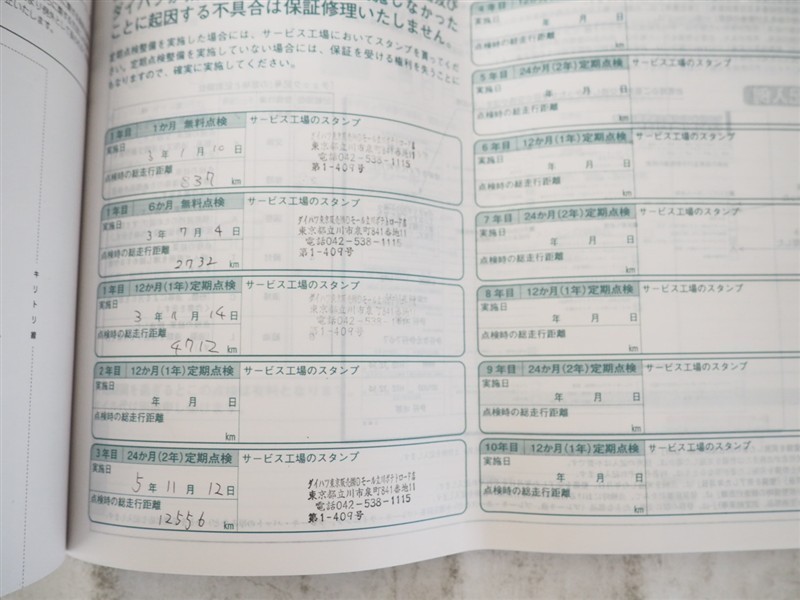 ことに起因する不具合は保証修理いたしません。
定期点検整備を実施した場合には、サービス工場においてスタンプを貰ってくだ
さい。定期点検整備を実施していない場合には、保証を受ける権利を失うことに
もなりますので、確実に実施してください。
1年目 1か月 無料点検 サービス工場のスタンプ
実施日
3年 1月 10日
点検時の総走行距離
837 km
東京都立川市泉町841番地11
電話042-538-1115
第1-409号
1年目 6か月 無料点検 サービス工場のスタンプ
実施日
3年 7月 4日
点検時の総走行距離
2732 km
東京都立川市泉町841番地11
電話042-538-1115
第1-409号
1年目 12か月(1年)定期点検 サービス工場のスタンプ
実施日
3年 11月 14日
点検時の総走行距離
4712 km
東京都立川市泉町841番地11
電話042-538-1115
第1-409号
2年目 12か月(1年)定期点検 サービス工場のスタンプ
実施日
年 月 日
点検時の総走行距離
km
3年目 24か月(2年)定期点検 サービス工場のスタンプ
実施日
5年 11月 12日
点検時の総走行距離
12556 km
東京都立川市泉町841番地11
電話042-538-1115
第1-409号
キリトリ線
実施日
年 月 日
点検時の総走行距離
km
5年目 24か月(2年)定期点検 サービス工場のスタンプ
実施日
年 月 日
点検時の総走行距離
km
6年目 12か月(1年)定期点検 サービス工場のスタンプ
実施日
年 月 日
点検時の総走行距離
km
7年目 24か月(2年)定期点検 サービス工場のスタンプ
実施日
年 月 日
点検時の総走行距離
km
8年目 12か月(1年)定期点検 サービス工場のスタンプ
実施日
年 月 日
点検時の総走行距離
km
9年目 24か月(2年)定期点検 サービス工場のスタンプ
実施日
年 月 日
点検時の総走行距離
km
10年目 12か月(1年)定期点検 サービス工場のスタンプ
実施日
年 月 日
点検時の総走行距離
km